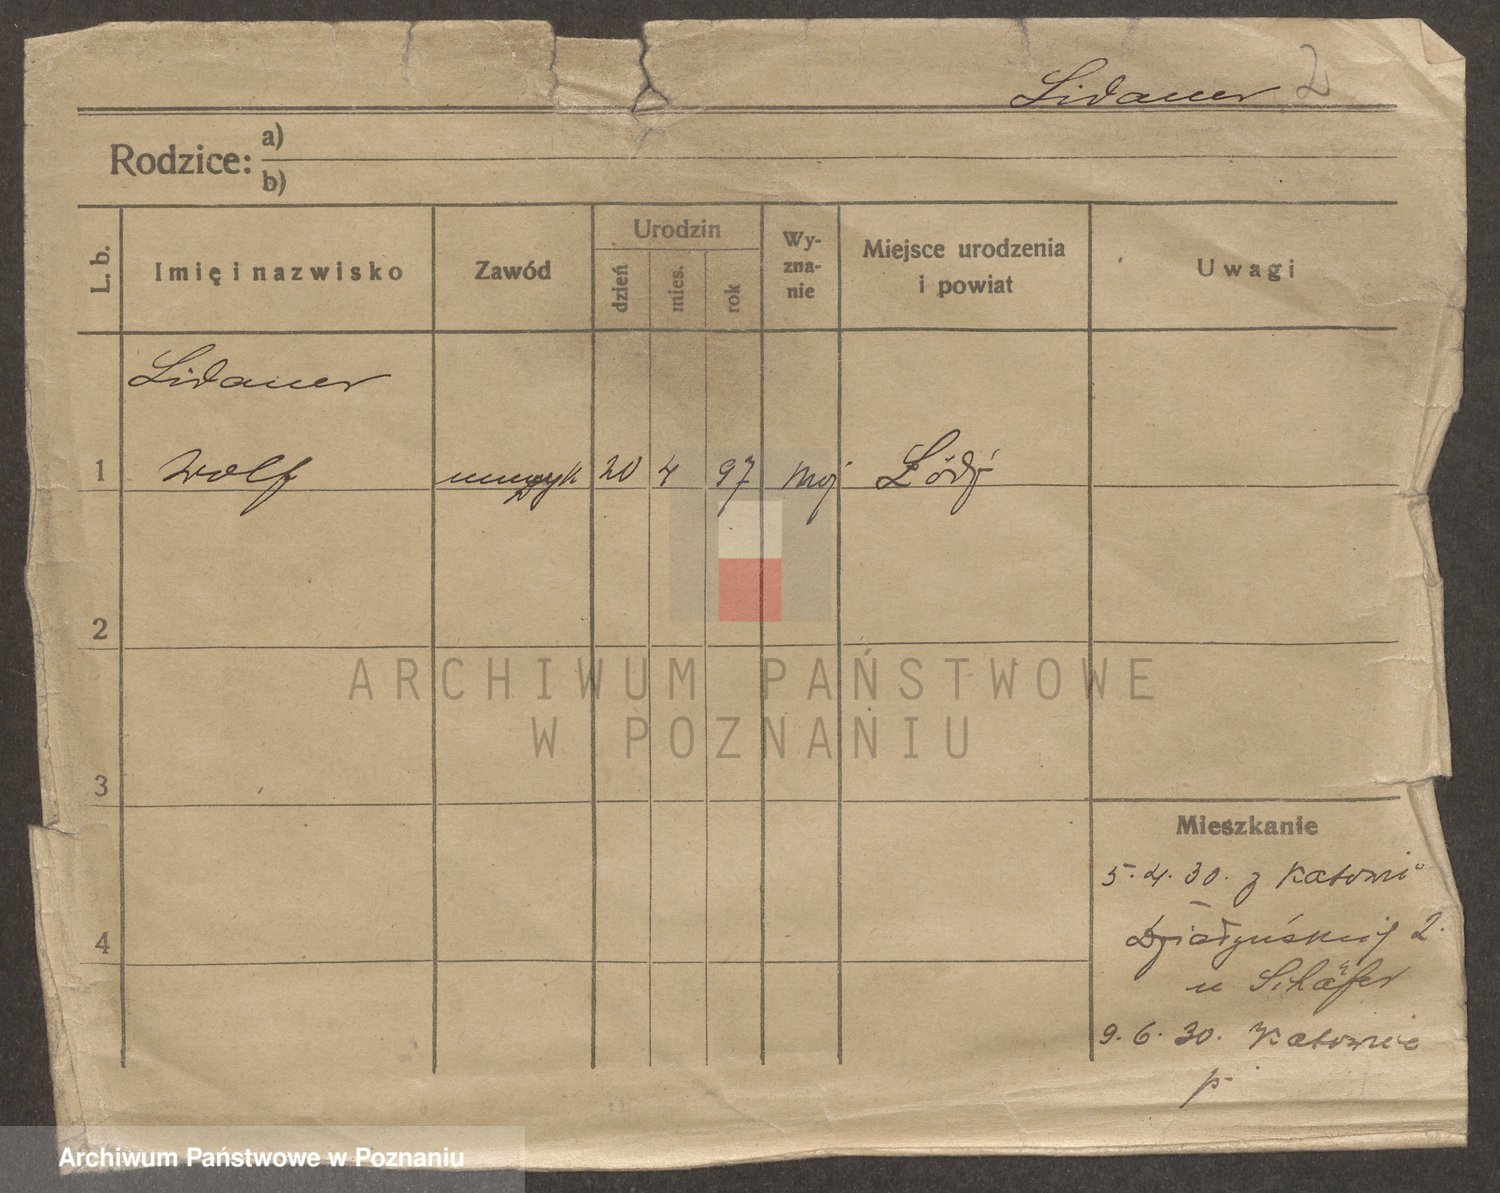 Lidauer 2
Rodzice: a)
b)
L. b.
Imię i nazwisko
Zawód
Urodzin
dzień
mies.
rok
Wy-
zna-
nie
Miejsce urodzenia
i powiat
Uwagi
Lidauer
1 Wolf muzyk 20 4 97 Moj Łódź
2
ARCHIWUM PAŃSTWOWE
W POZNANIU
3
Mieszkanie
5.4.30. z Katowic
4
Działyńskich 2.
u Schäfer
9.6.30. Katowice
p.
Archiwum Państwowe w Poznaniu